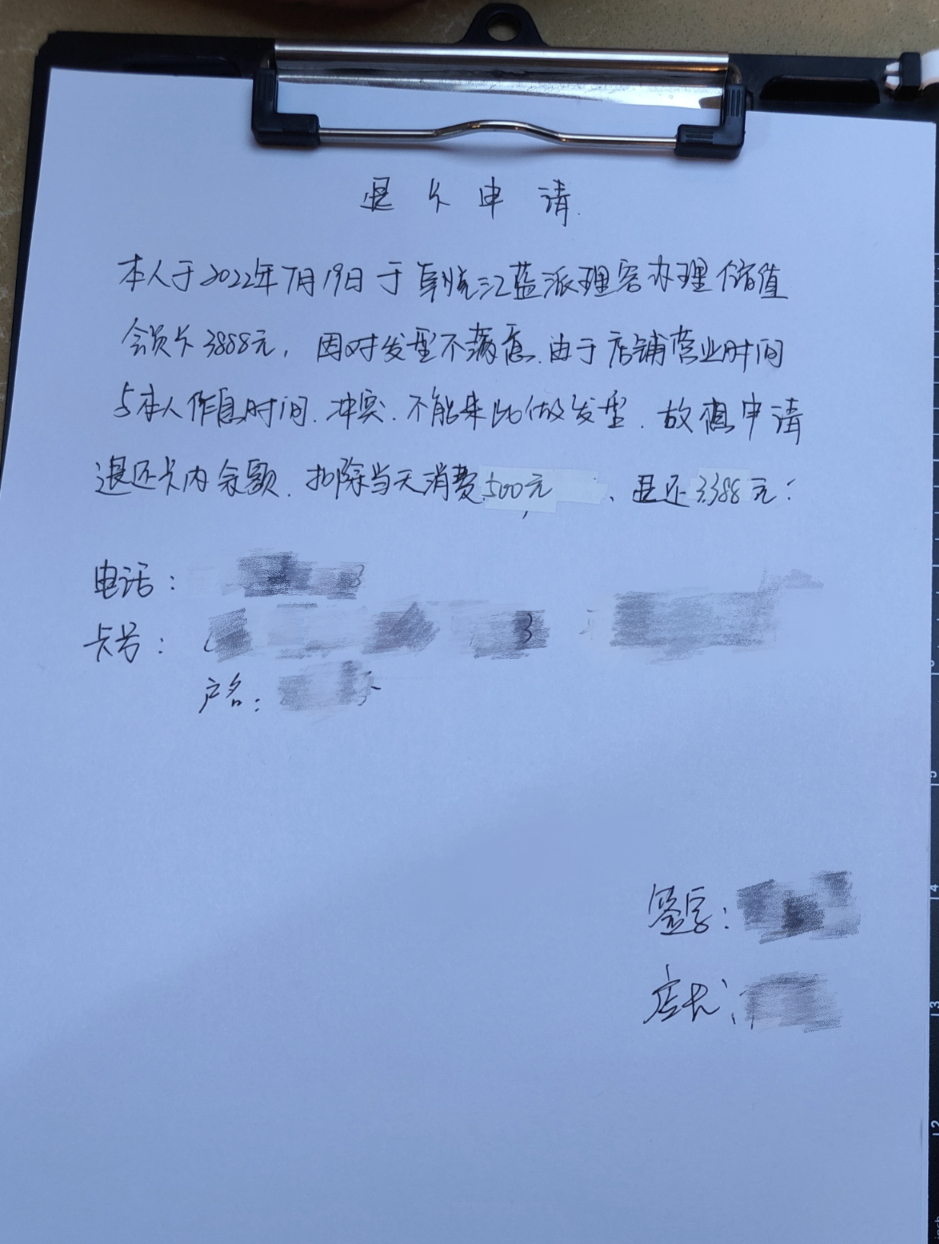 退卡申请.
本人于2022年7月19日于 江蓝派理容办理储值
会员卡3888元, 因对发型不满意.由于店铺营业时间
与本人作息时间.冲突.不能来此做发型.故想申请
退还卡内余额.扣除当天消费500元、退还3388元:
电话: 3
卡号: 3
户名:
签字:
店长:
3
4
3
2